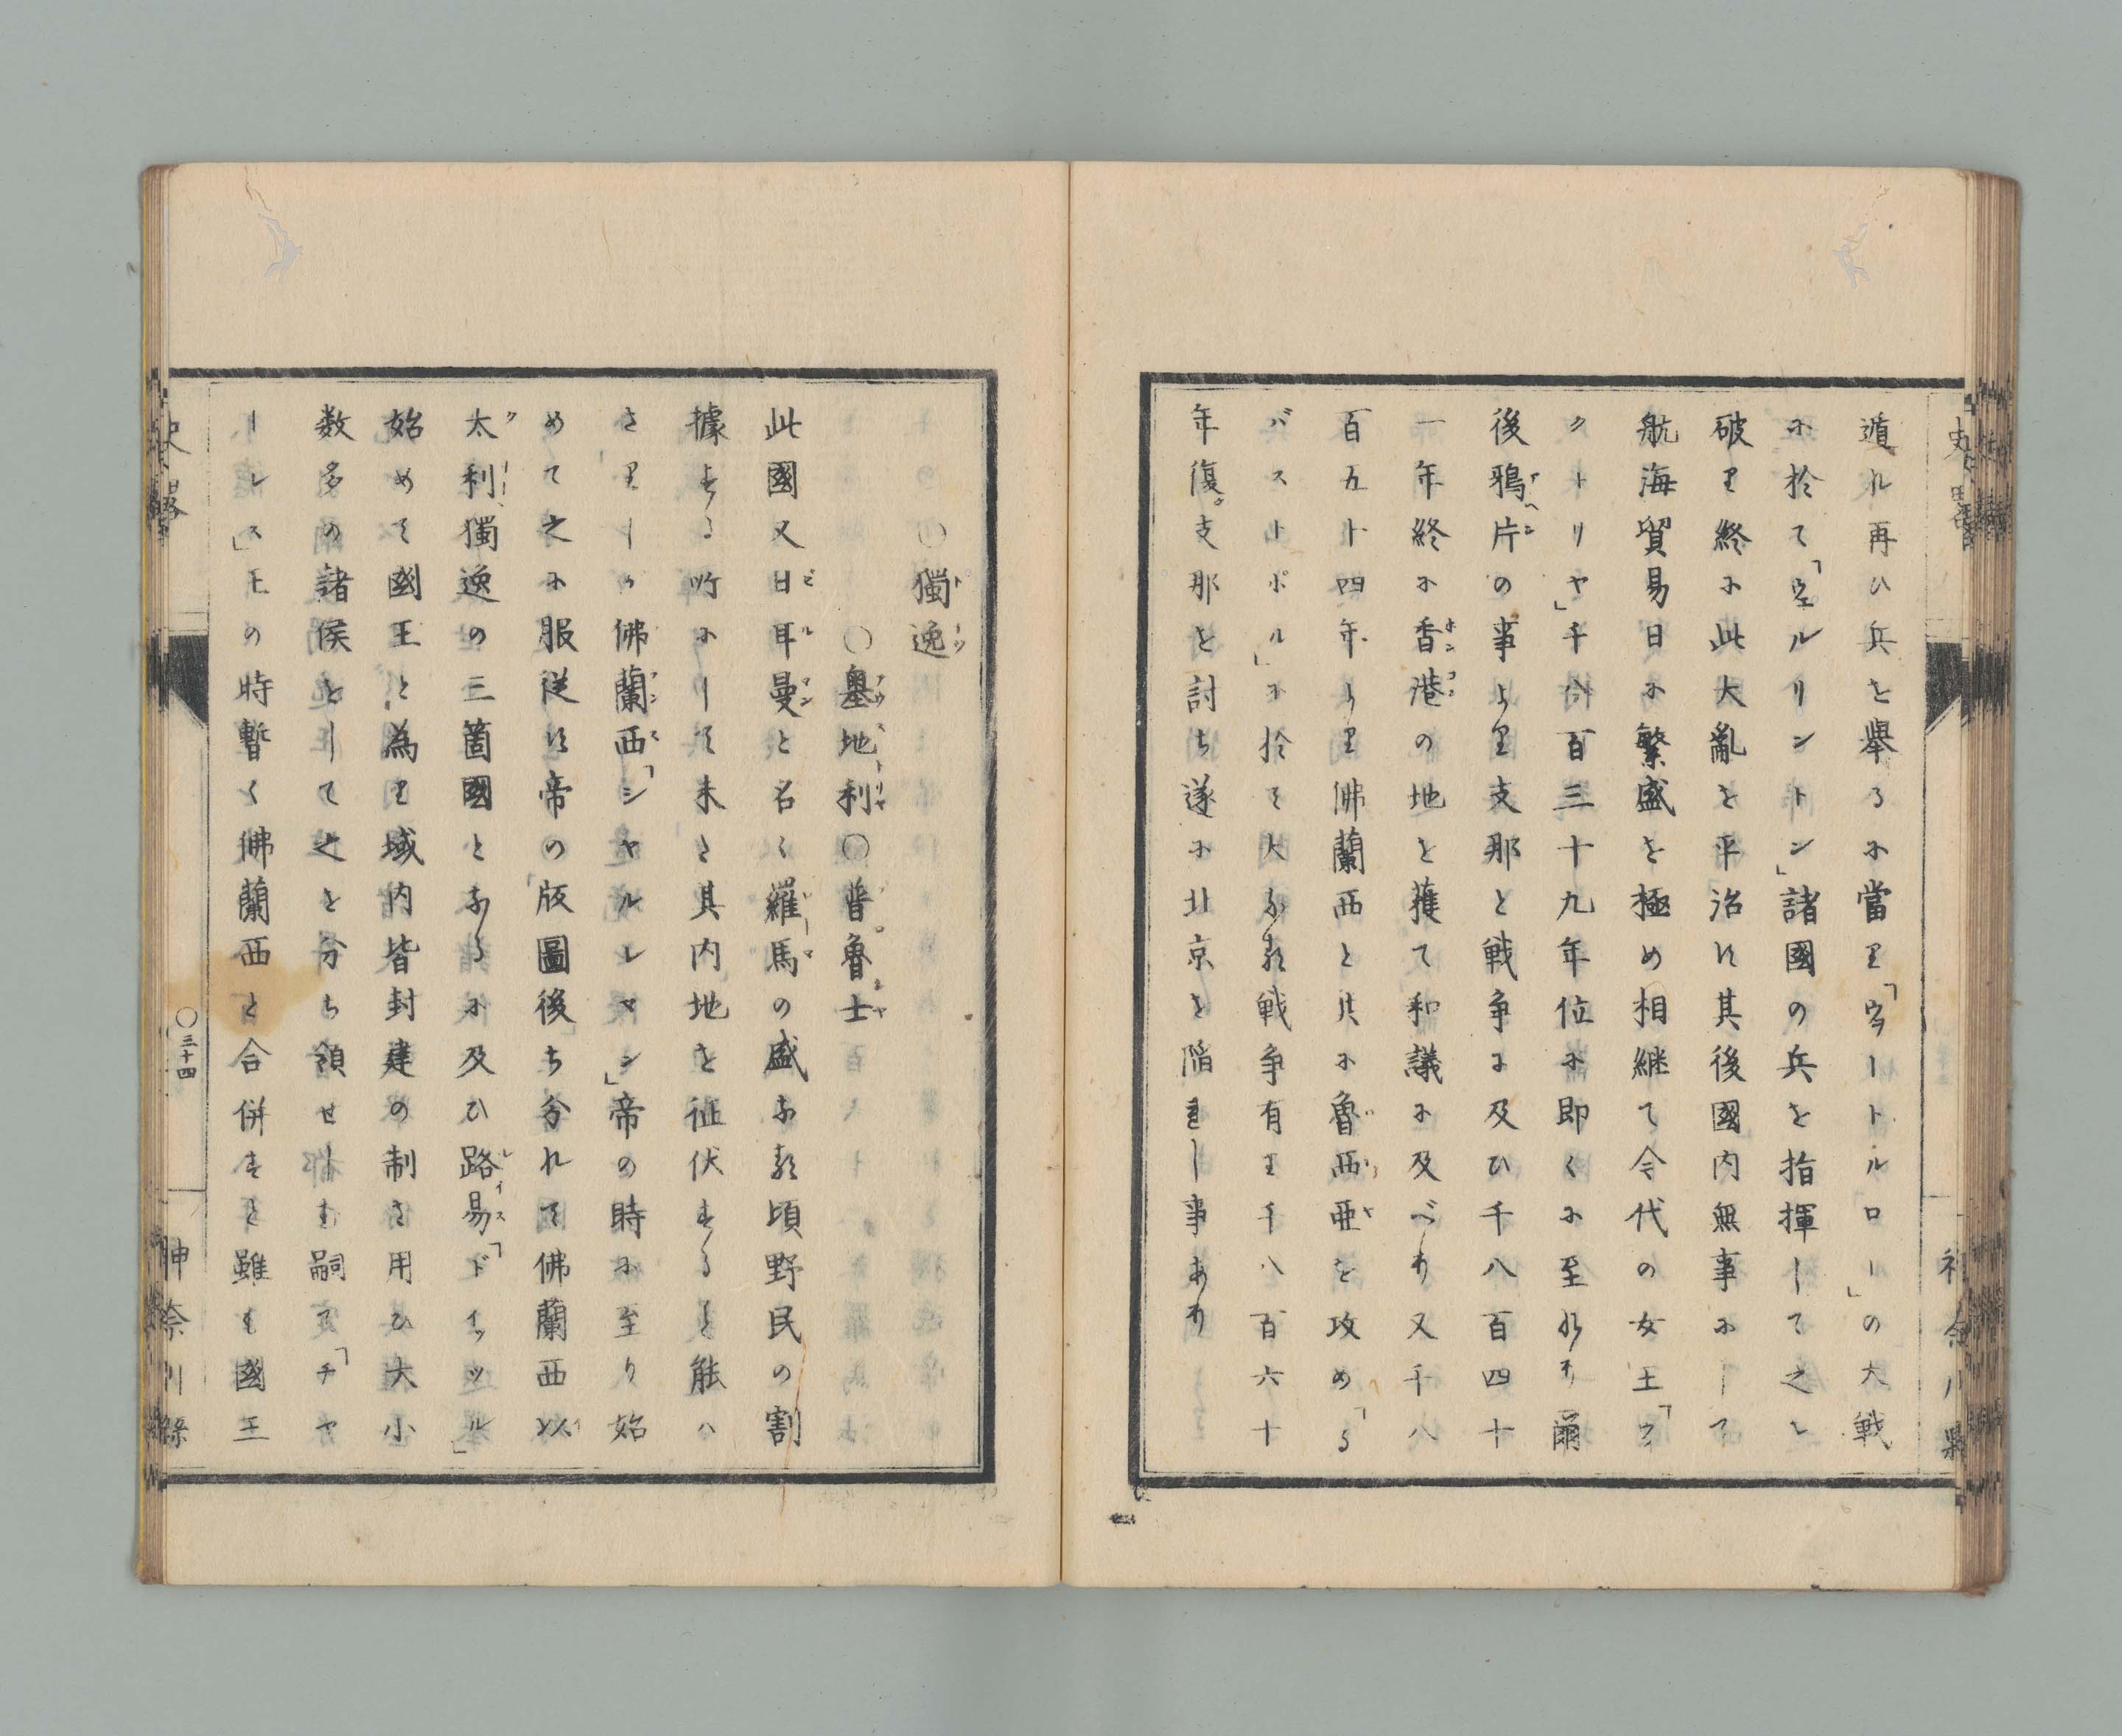 遁れ再ひ兵を舉るに當り「ウアートルロー」の大戦
に於て「ウエルリントン」諸國の兵を指揮して之を
破り終に此大亂を平治す其後國内無事にして
航海貿易日に繁盛を極め相継て今代の女王「ウ井
クトリヤ」千八百三十九年位に即くに至れり爾
後鴉片の事より支那と戦争に及ひ千八百四十
一年終に香港の地を獲て和議に及べり又千八
百五十四年より佛蘭西と共に魯西亜を攻め「る
バストポル」に於て大なる戦争有り千八百六十
年復支那を討ち遂に北京を陥れし事あり
史略
神奈川縣
○獨逸
○墺地利○普魯士
此國又日耳曼と名く羅馬の盛なる頃野民の割
據する所にして未た其内地を征伏する能ハ
さりしか佛蘭西「シヤルレマン」帝の時に至り始
めて之に服従す帝の版圖後ち分れて佛蘭西以
太利獨逸の三箇國となるに及ひ路易「ドイツル」
始めて國王と為り域内皆封建の制を用ひ大小
数多の諸侯をして之を分ち領せしむ嗣て「チヤ
ーレス」王の時暫く佛蘭西と合併すと雖も國王
史略
○三十四
神奈川縣